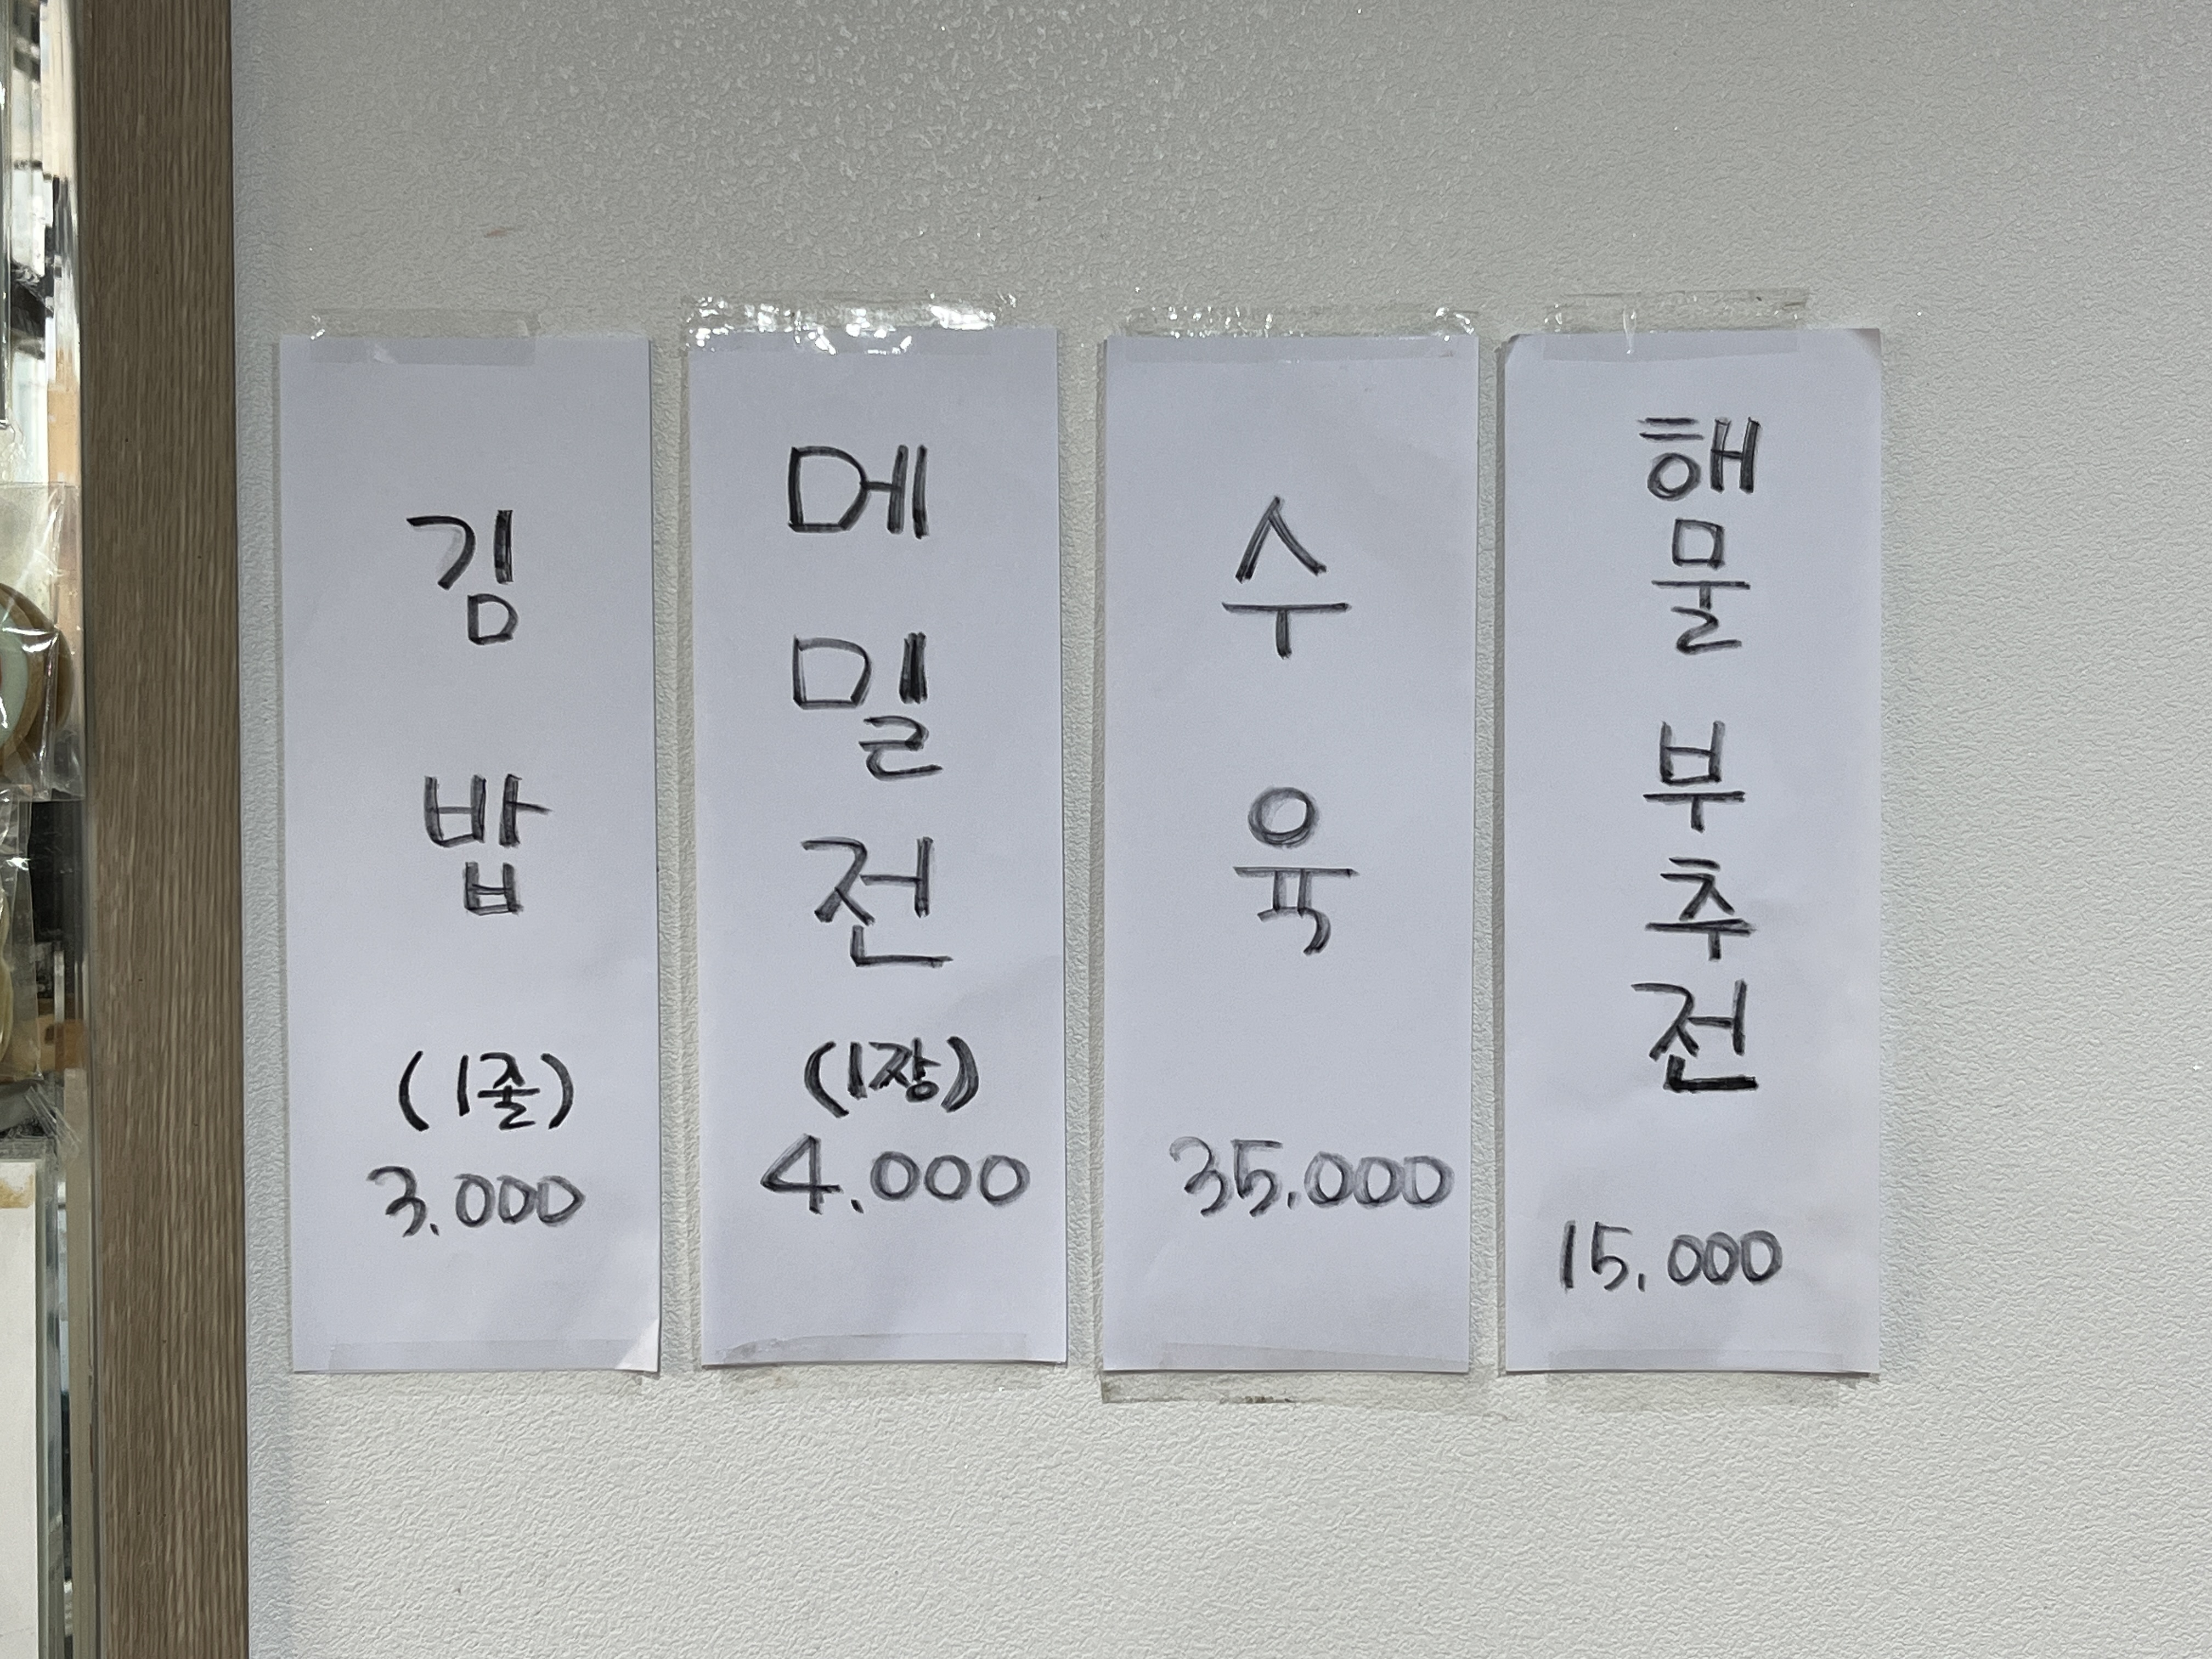 김밥
(1줄)
3.000
메밀전
(1장)
4.000
수육
35.000
해물 부추전
15.000